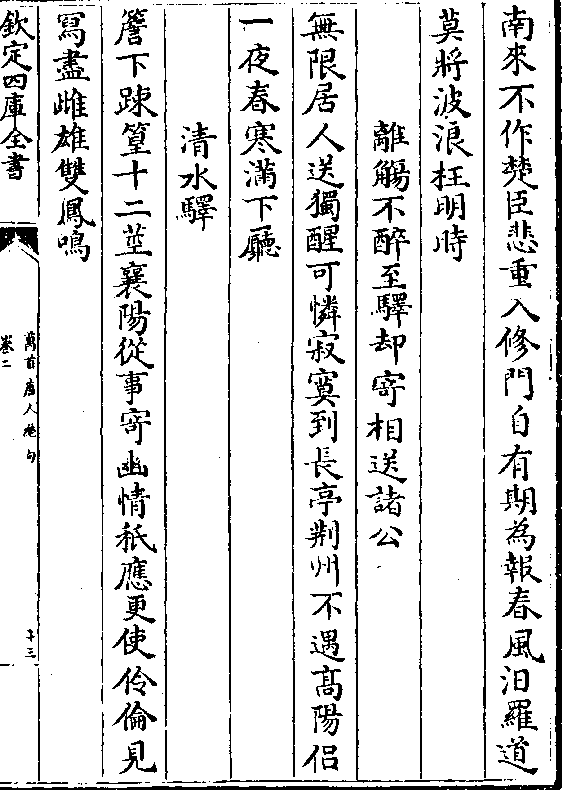 南來不作楚臣悲重入修門自有期為報春風汨羅道
莫將波浪枉明時
離觴不醉至驛却寄相送諸公
無限居人送獨醒可憐寂寞到長亭荆州不遇髙陽侣
一夜春寒滿下廳
清水驛
簷下踈篁十二莖襄陽從事寄幽情秖應更使伶倫見
寫盡雌雄雙鳳鳴
欽定四庫全書
萬首唐人絶句
卷二
十三